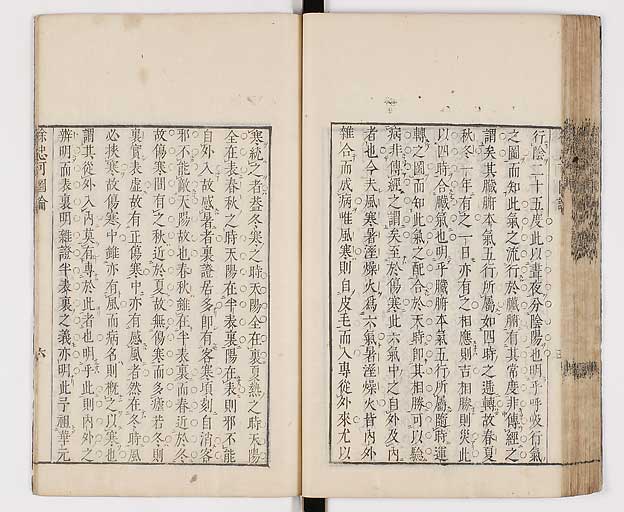 行陰二十五度此以晝夜分陰陽也明乎呼吸行氣
之圖而知此氣之流行於臟腑有其常度非傳經之
謂矣其臟腑本氣五行所屬如四時之遞轉故春夏
秋冬一年有之一日亦有之相應則吉相勝則災此
以四時合臟氣也明乎臟腑本氣五行所屬隨時運
轉之圖而知此氣之配合於天時卽其相勝可以驗
病非傳經之謂矣至於傷寒此六氣中之自外及內
者也今夫風寒暑溼燥火爲六氣暑溼燥火皆內外
雜合而成病唯風寒則自皮毛而入專從外來尤以
寒統之者蓋冬寒之時天陽全在裏夏熱之時天陽
全在表春秋之時天陽在半表裏陽在表則邪不能
自外入故感暑者裏證居多卽有客寒頃刻自消客
邪不能敵天陽故也春秋雖在半表裏而春近於冬
故傷寒間有之秋近於夏故無傷寒而多瘧若冬則
裏實表虛故有正傷寒中亦有感風者然在冬時風
必挾寒故傷寒中雖亦有風而病名則槪之以寒也
謂其從外入內莫有專於此者也明乎此則內外之
辨明而表裏明雜證半表裏之義亦明此予祖華元
徐忠可圖論
六